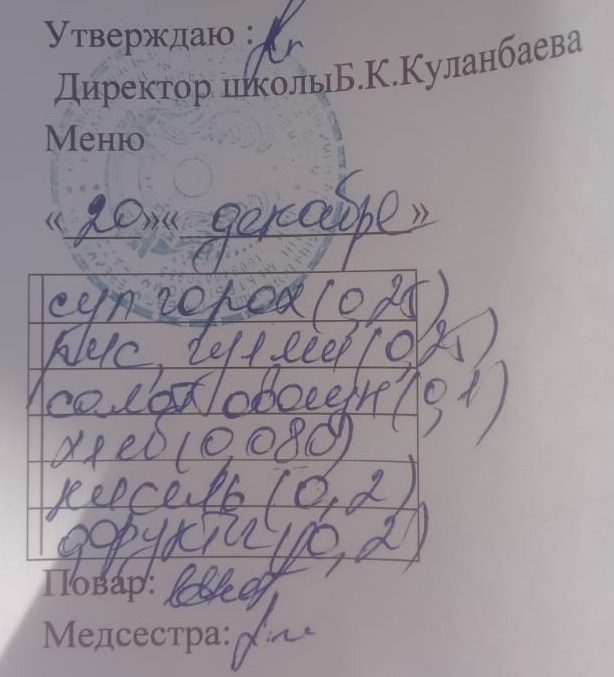 Утверждаю :
Директор школыБ.К.Куланбаева
Меню
«20»« декабре»
суп горох (0,25)
рис, гуляш (0,25)
салат овощн (0,1)
хлеб (0,080)
кисель (0,2)
фрукты (0,2)
Повар:
Медсестра: